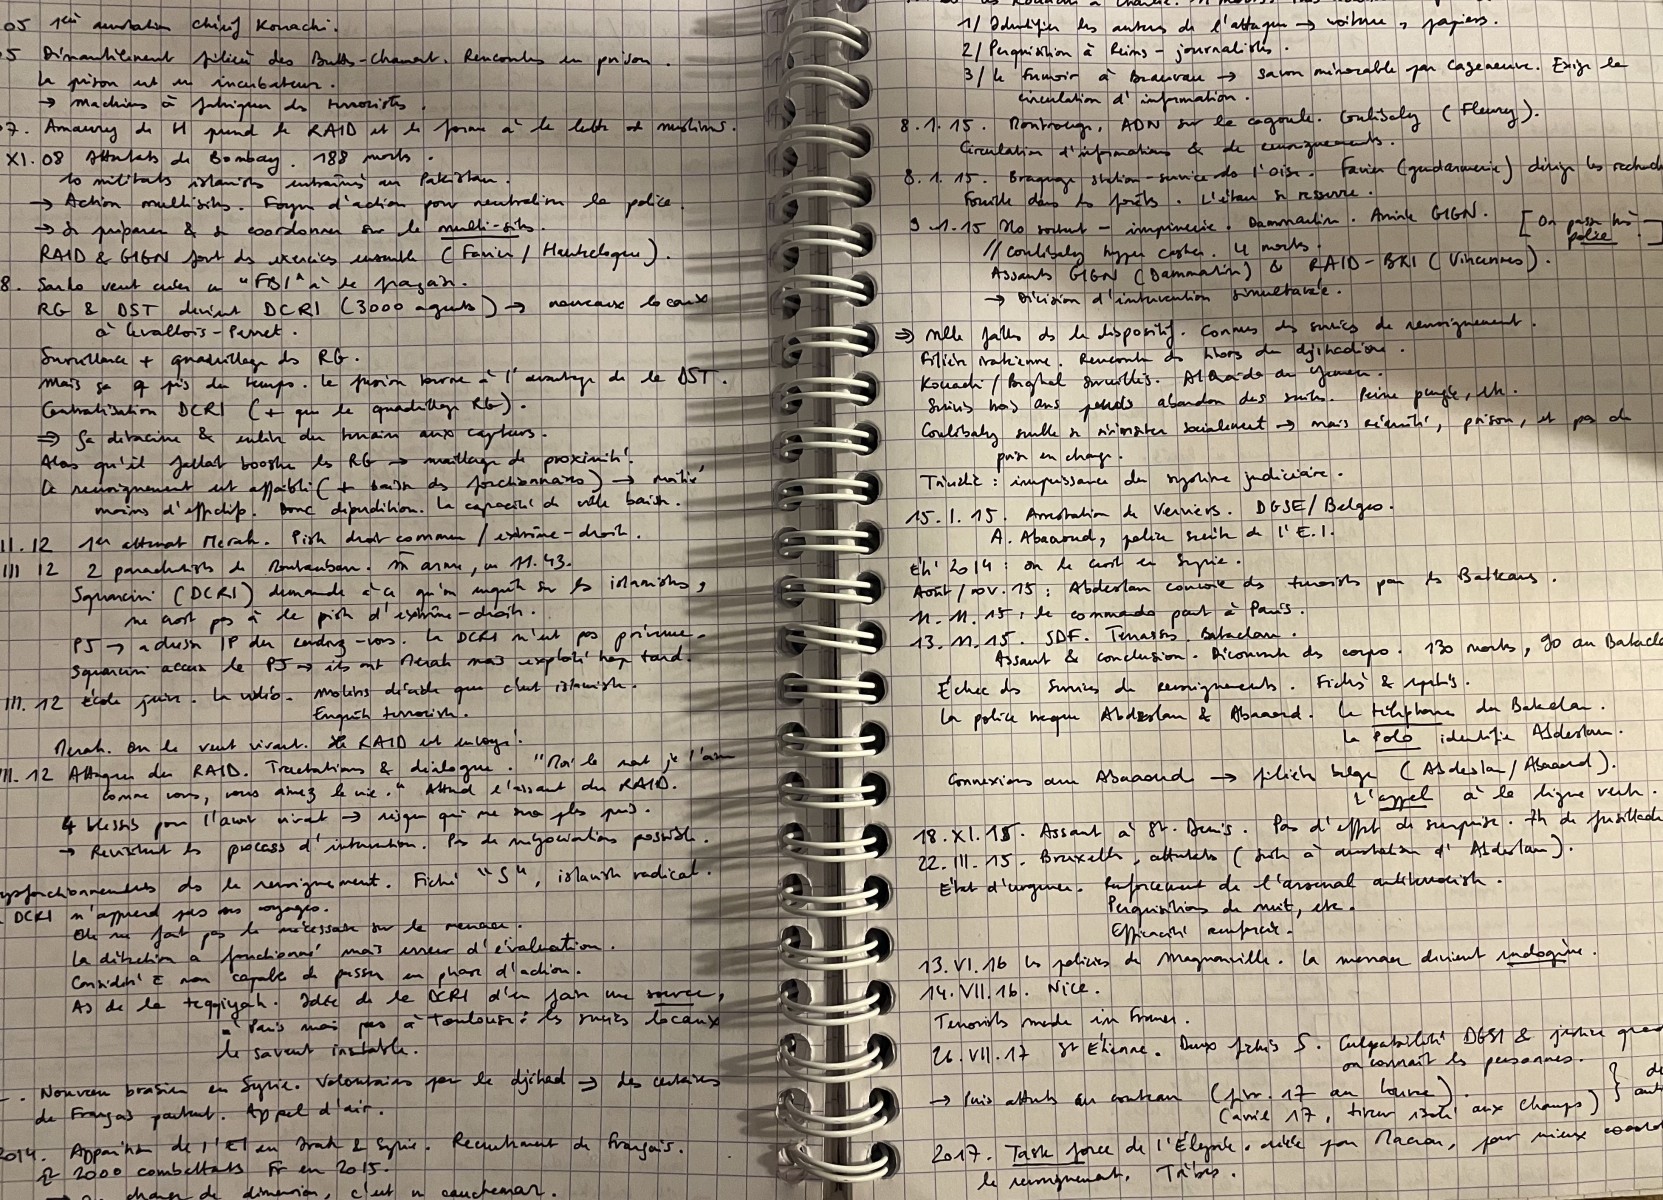 05 1ère arrestation Chérif Kouachi.
5 Démantèlement filière des Buttes-Chaumont. Rencontres en prison.
La prison est un incubateur.
→ machines à fabriquer des terroristes.
07. Amaury de H prend le RAID et le forme à la lutte
XI.08 Attentats de Bombay. 188 morts.
10 militants islamistes entraînés au Pakistan.
→ Action multisites. Façon d'action pour neutraliser la police.
→ Se préparer & se coordonner sur le multi-sites.
RAID & GIGN font des exercices ensemble (Favier / Hauteclocque).
8. Sarko veut créer un "FBI" à la française.
RG & DST devient DCRI (3000 agents) → nouveaux locaux
à Levallois-Perret.
Surveillance + quadrillage des RG.
Mais ça du temps. La fusion tourne à l'avantage de la DST.
Centralisation DCRI (+ que le quadrillage RG).
⇒ Ça déracine & enlève du terrain aux capteurs.
Alors qu'il fallait booster les RG → maillage de proximité.
Le renseignement est affaibli (+ baisse des fonctionnaires) → moitié
moins d'effectifs. Donc déperdition. La capacité de veille baisse.
III.12 1er attentat Merah. Piste droit commun / extrême-droite.
III 12 2 parachutistes de Montauban. m̂ arme, un 11.43.
Squarcini (DCRI) demande à ce qu'on enquête sur les islamistes,
ne croit pas à la piste d'extrême-droite.
PJ → adresse IP du rendez-vous. La DCRI n'est pas prévenue.
Squarcini accuse la PJ → ils ont Merah mais exploité trop tard.
III.12 École juive. La vidéo. Molins décide que c'est islamiste.
Enquête terroriste.
Merah. On le veut vivant. Le RAID est envoyé.
III.12 Attaque du RAID. Tractations & dialogue. "Moi la mort je l'aime
comme vous, vous aimez la vie." Attend l'assaut du RAID.
4 blessés pour l'avoir vivant → risque qui ne sera plus pris.
→ Revisitent les process d'intervention. Pas de négociation possible.
Dysfonctionnements ds le renseignement. Fiché "S", islamiste radical.
DCRI n'apprend pas ses voyages.
Elle ne fait pas le nécessaire sur la menace.
La détection a fonctionné mais erreur d'évaluation.
Considéré non capable de passer en phase d'action.
As de la taqqiyah. Idée de la DCRI d'en faire une source,
à Paris mais pas à Toulouse : les services locaux
le savent instable.
Nouveau brasier en Syrie. Volontaires pour le djihad → des centaines
de Français partent. Appel d'air.
2014. Apparition de l'EI en Irak & Syrie. Recrutement de Français.
2000 combattants Fr en 2015.
→ changer de dimension, c'est un cauchemar.
1/ Identifier les auteurs de l'attaque → voiture, papiers.
2/ Perquisition à Reims - journalistes.
3/ Le fumoir à Beauvau → savon mémorable par Cazeneuve. Exige la
circulation d'information.
8.1.15. Montrouge, ADN sur la cagoule. Coulibaly (Fleury).
Circulation d'informations & de renseignements.
8.1.15. Braquage station-service ds l'Oise. Favier (gendarmerie) dirige les recherches
Fouille dans les forêts. L'étau se resserre.
9.1.15 Ils sortent - imprimerie. Dammartin. Arrivée GIGN. [On passe
police]
// Coulibaly hyper casher. 4 morts.
Assauts GIGN (Dammartin) & RAID-BRI (Vincennes).
→ Décision d'intervention simultanée.
⇒ Mille failles ds le dispositif. Connus des services de renseignement.
Filière irakienne. Rencontre ds ténors du djihadisme.
Kouachi / Beghal surveillés. Al Qaida au Yemen.
Suivis trois ans abandon des suivis. Peine purgée, etc.
Coulibaly semble se réinsérer socialement → mais récidive, prison, et pas de
prise en charge.
Trinité : impuissance du système judiciaire.
15.1.15. Arrestation de Verviers. DGSE/Belges.
A. Abaaoud, police secrète de l'E.I.
Été 2014 : on le croit en Syrie.
Août/nov. 15 : Abdeslam convoie des terroristes par les Balkans.
11.11.15 : le commando part à Paris.
13.11.15. SDF. Terrasses. Bataclan.
Assaut & conclusion. Découverte des corps. 130 morts, 90 au Bataclan
Échec des Services de renseignements. Fichés & repérés.
La police traque Abdeslam & Abaaoud. Le téléphone du Bataclan.
La Polo identifie Abdeslam.
Connexions avec Abaaoud → filière belge (Abdeslam/Abaaoud).
L'appel à la ligne verte.
18.XI.15. Assaut à St-Denis. Pas d'effet de surprise. 7h de fusillade
22.III.15. Bruxelles, attentats (suite à arrestation d'Abdeslam).
État d'urgence. Renforcement de l'arsenal antiterroriste.
Perquisitions de nuit, etc.
Efficacité renforcée.
13.VI.16 Les policiers de Magnanville. La menace devient endogène.
14.VII.16. Nice.
Terrorists made in France.
26.VII.17 St Étienne. Deux fichés S. Culpabilité DGSI & justice quand
on connaît les personnes.
→ Puis attentats au couteau (févr. 17 au Louvre)
(avril 17, tireur isolé aux Champs)
2017. Task force de l'Élysée, créée par Macron, pour mieux
le renseignement. Tribus.